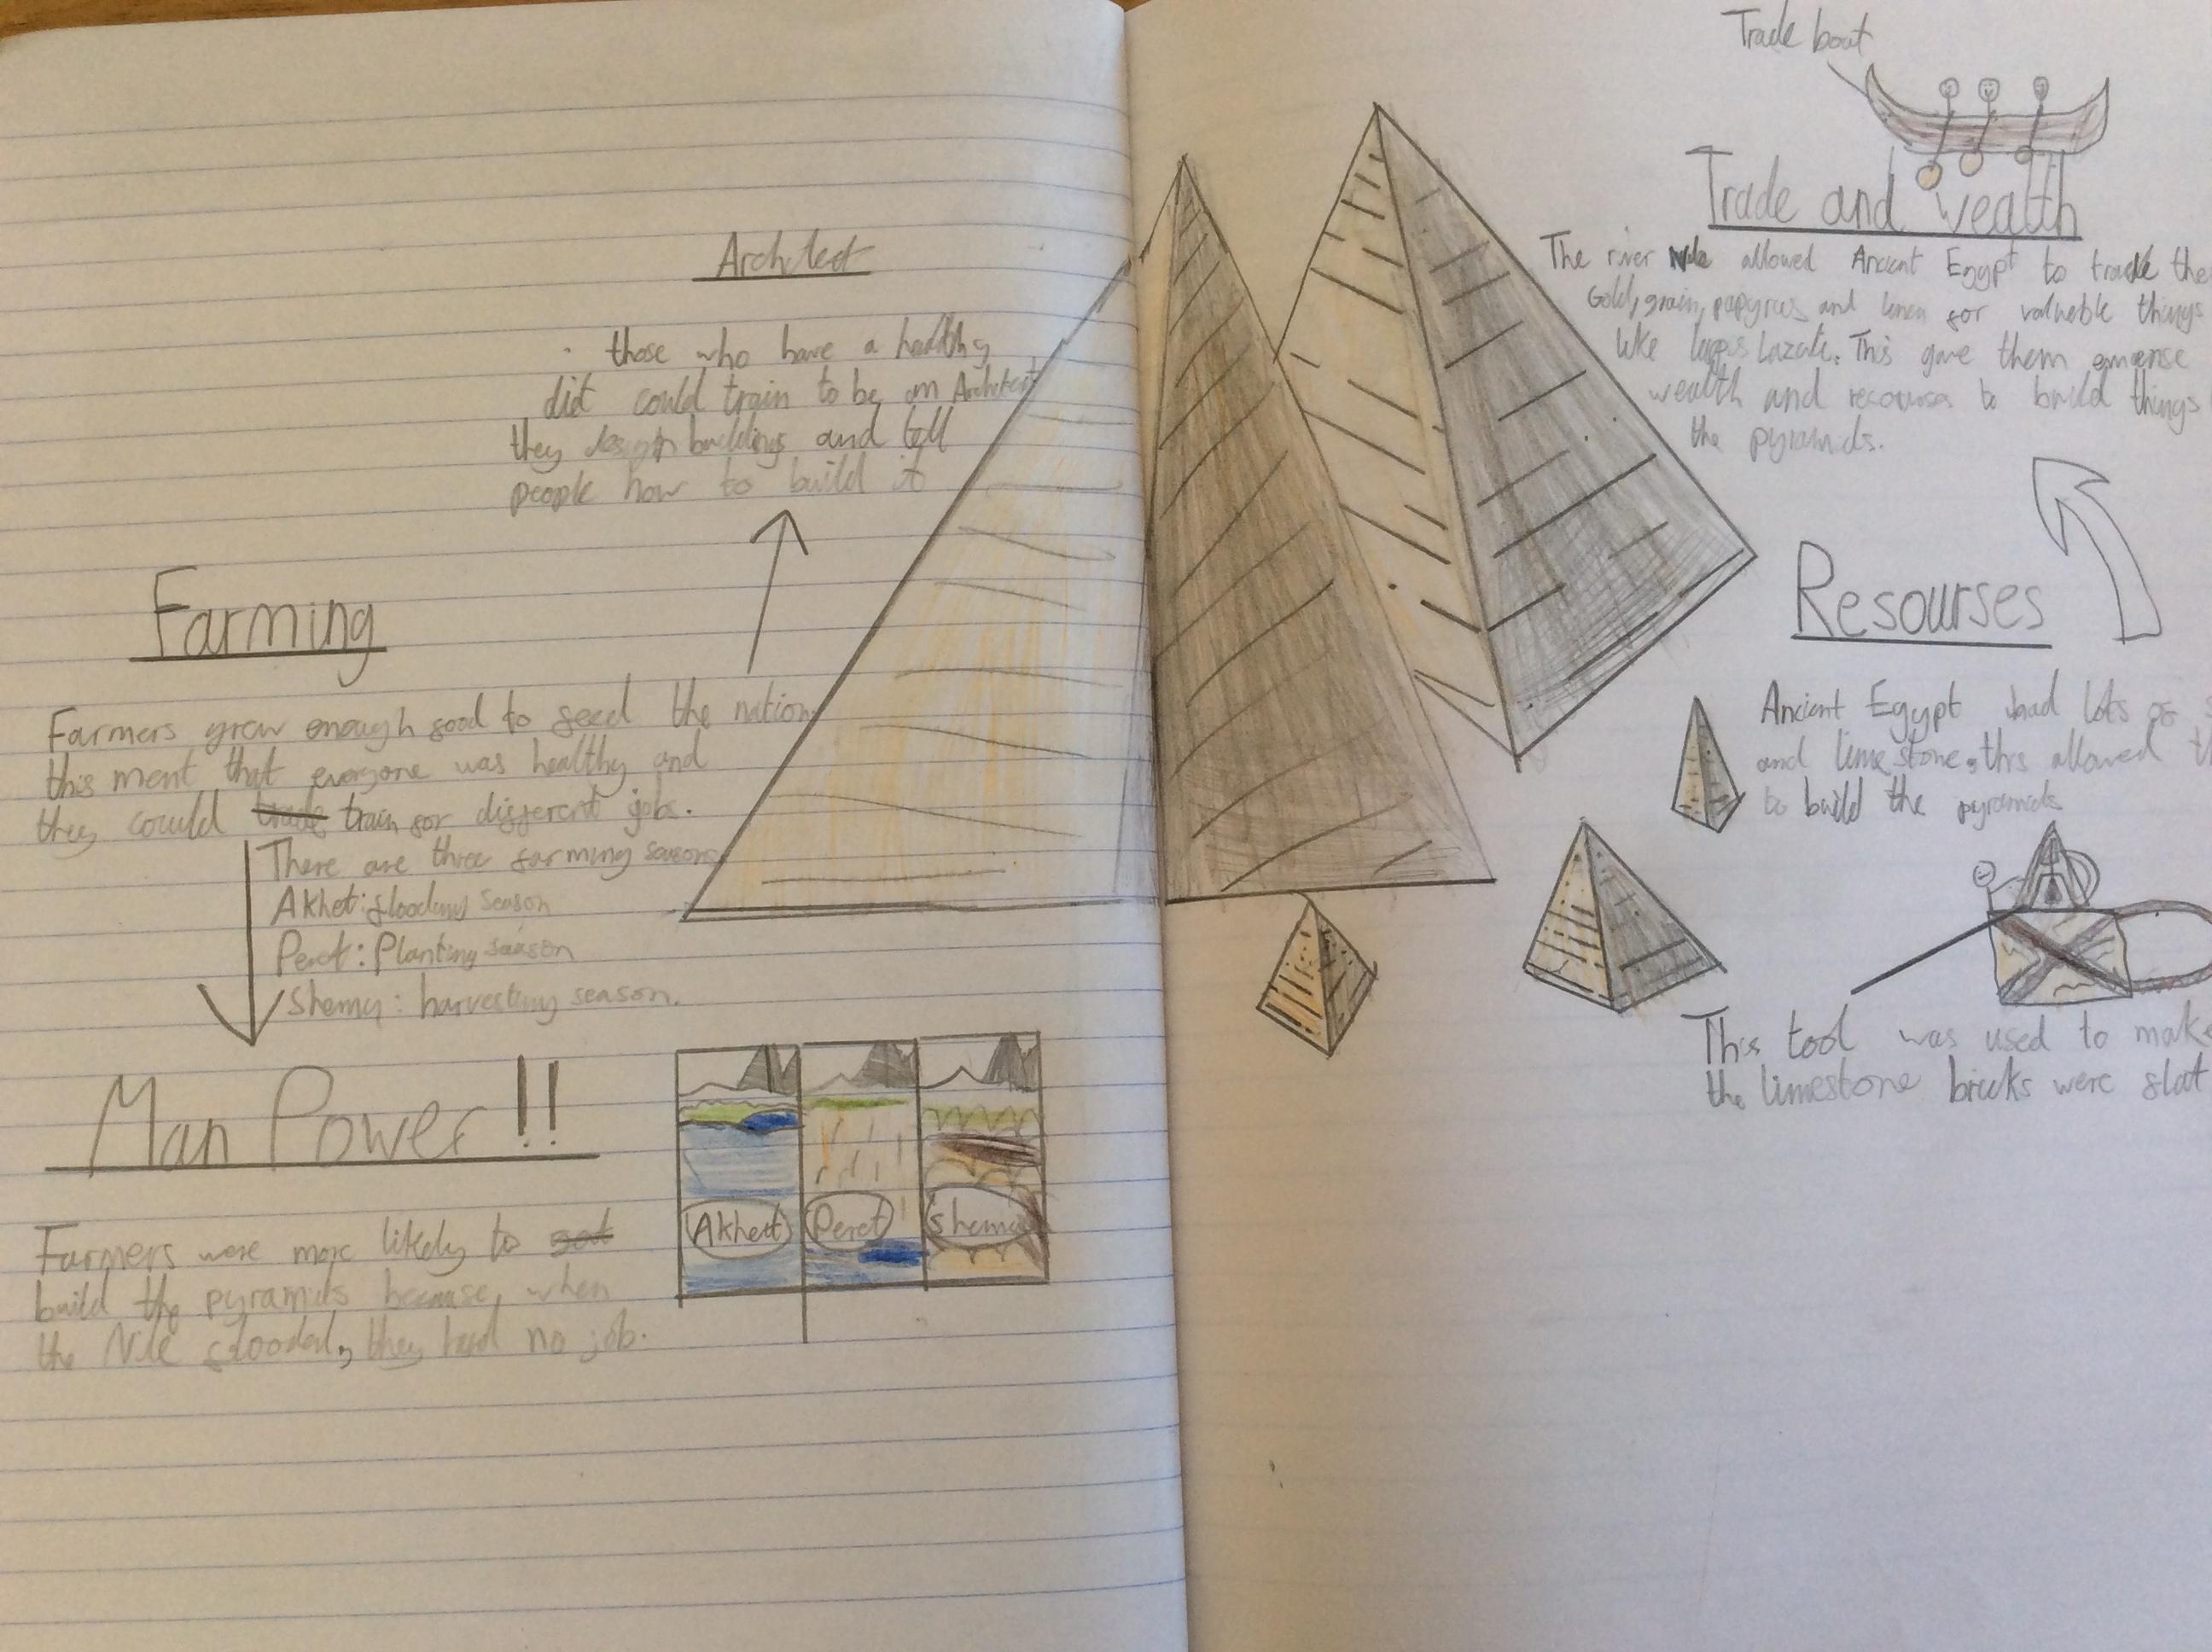 Architect
those who have a healthy
diet could train to be an Architect
they design buildings and tell
people how to build it
Farming
Farmers grew enough food to feed the nation
this ment that everyone was healthy and
they could trade train for different jobs.
There are three farming seasons
Akhet: flooding season
Peret: Planting season
Shemu: harvesting season.
Man Power!!
Farmers were more likely to
build the pyramids because, when
the Nile flooded, they had no job.
Akhet
Peret
Shemu
Trade boat
Trade and wealth
The river Nile allowed Ancient Egypt to trade the
Gold, grain, papyrus and linen for valueble things
like lapis Lazuli. This gave them emense
wealth and recourses to build things
the pyramids.
Resourses
Ancient Egypt had lots of
and limestone, this allowed
to build the pyramids
This tool was used to make
the limestone bricks were flat